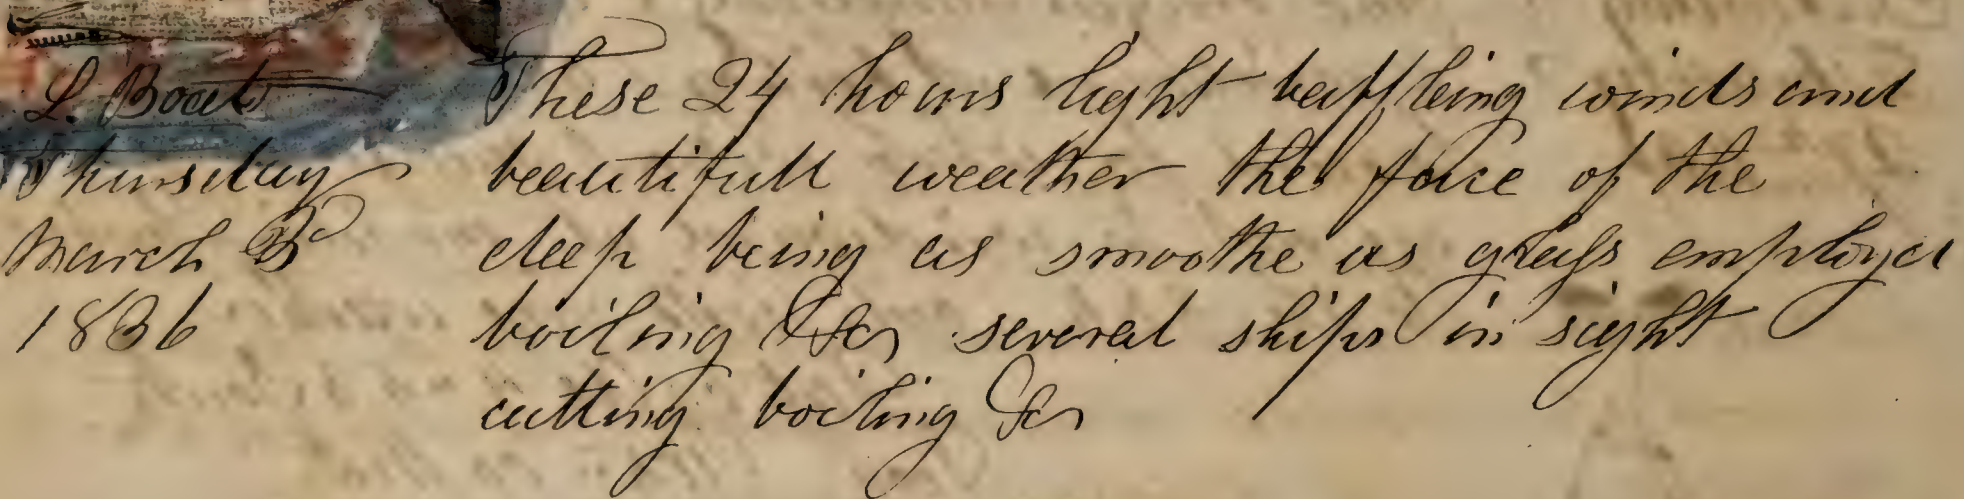 L. Boat
Thursday
March 3d
1836
These 24 hours light baffleing winds and
beautifull weather the face of the
deep being as smoothe as glass employed
boiling &c several ships in sight
cutting boiling &c